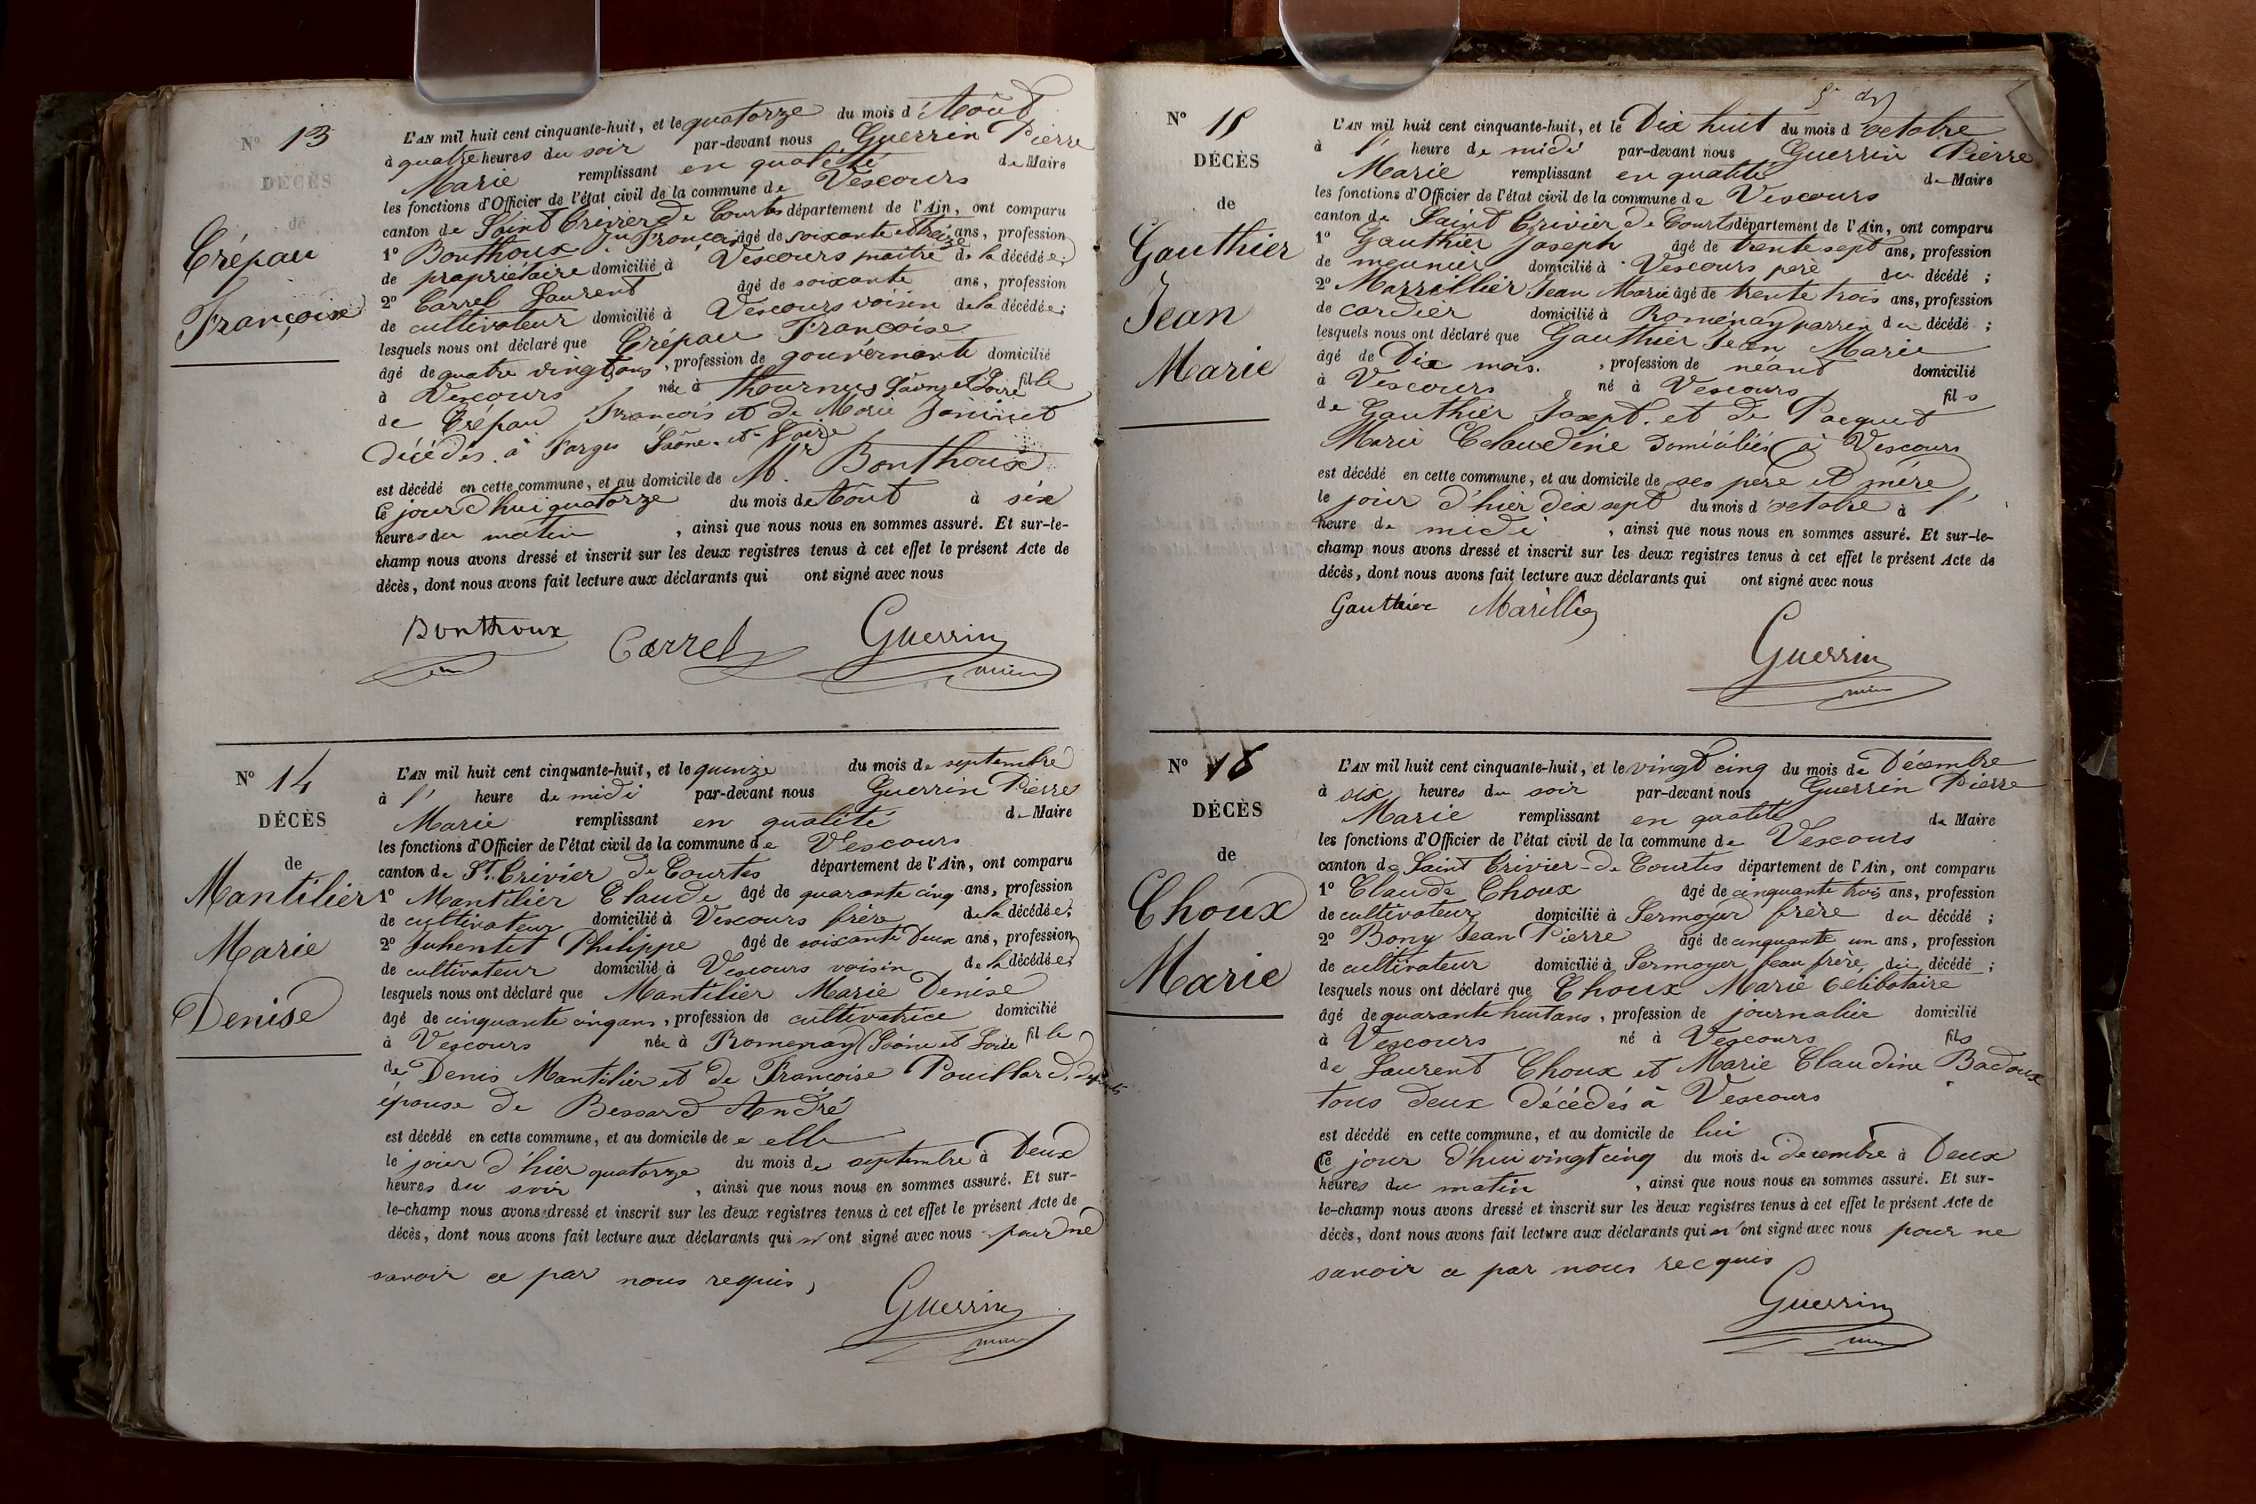 N° 13
DÉCÈS
de
Crépau
Françoise
L'AN mil huit cent cinquante-huit, et le quatorze du mois d'Août
à quatre heures du soir par-devant nous Guerrin Pierre
Marie remplissant en qualité de Maire
les fonctions d'Officier de l'état civil de la commune de Vescours
canton de Saint Trivier de Courtes département de l'Ain, ont comparu
1° Bonthoux Jn François âgé de soixante et treize ans, profession
de propriétaire domicilié à Vescours maitre de la décédée;
2° Carrel Laurent âgé de soixante ans, profession
de cultivateur domicilié à Vescours voisin de la décédée;
lesquels nous ont déclaré que Crépau Françoise
âgé de quatre vingt ans, profession de gouvernante domicilié
à Vescours née à Thournus Saône et Loire fille
de Crépau François et de Marie Joninet
décédés à Farges Saône-et-Loire
est décédé en cette commune, et au domicile de Mr. Bonthoux
Ce jourd'hui quatorze du mois de Août à six
heures du matin, ainsi que nous nous en sommes assuré. Et sur-le-
champ nous avons dressé et inscrit sur les deux registres tenus à cet effet le présent Acte de
décès, dont nous avons fait lecture aux déclarants qui ont signé avec nous
Bonthoux Carrel Guerrin
N° 14
DÉCÈS
de
Mantilier
Marie
Denise
L'AN mil huit cent cinquante-huit, et le quinze du mois de septembre
à l' heure de midi par-devant nous Guerrin Pierre
Marie remplissant en qualité de Maire
les fonctions d'Officier de l'état civil de la commune de Vescours
canton de St. Trivier de Courtes département de l'Ain, ont comparu
1° Mantilier Claude âgé de quarante cinq ans, profession
de cultivateur domicilié à Vescours frère de la décédée;
2° Juhentet Philippe âgé de soixante deux ans, profession
de cultivateur domicilié à Vescours voisin de la décédée;
lesquels nous ont déclaré que Mantilier Marie Denise
âgé de cinquante cinq ans, profession de cultivatrice domicilié
à Vescours née à Romenay (Saône et Loire fille
de Denis Mantilier et de Françoise Pouillard, défunts
épouse de Bessard André
est décédé en cette commune, et au domicile de elle
le jour d'hier quatorze du mois de septembre à Deux
heures du soir, ainsi que nous nous en sommes assuré. Et sur-
le-champ nous avons dressé et inscrit sur les deux registres tenus à cet effet le présent Acte de
décès, dont nous avons fait lecture aux déclarants qui n'ont signé avec nous pour ne
savoir ce par nous requis,
Guerrin
N° 15
DÉCÈS
de
Gauthier
Jean
Marie
L'AN mil huit cent cinquante-huit, et le Dix huit du mois d'octobre
à l' heure de midi par-devant nous Guerrin Pierre
Marie remplissant en qualité de Maire
les fonctions d'Officier de l'état civil de la commune de Vescours
canton de Saint Trivier de Courts département de l'Ain, ont comparu
1° Gauthier Joseph âgé de trente sept ans, profession
de meunier domicilié à Vescours père du décédé;
2° Marrillier Jean Marie âgé de trente trois ans, profession
de cordier domicilié à Romenay parrin du décédé;
lesquels nous ont déclaré que Gauthier Jean Marie
âgé de Dix mois, profession de néant domicilié
à Vescours né à Vescours fils
de Gauthier Josept. et de Pacquet
Marie Claudine Domiciliés à Vescours
est décédé en cette commune, et au domicile de ses père et mère
le jour d'hier dix sept du mois d'octobre à l'
heure de midi, ainsi que nous nous en sommes assuré. Et sur-le-
champ nous avons dressé et inscrit sur les deux registres tenus à cet effet le présent Acte de
décès, dont nous avons fait lecture aux déclarants qui ont signé avec nous
Gauthier Marillier
Guerrin
N° 18
DÉCÈS
de
Choux
Marie
L'AN mil huit cent cinquante-huit, et le vingt cinq du mois de Décembre
à six heures du soir par-devant nous Guerrin Pierre
Marie remplissant en qualité de Maire
les fonctions d'Officier de l'état civil de la commune de Vescours
canton de Saint Trivier-de Courtes département de l'Ain, ont comparu
1° Claude Choux âgé de cinquante trois ans, profession
de cultivateur domicilié à Sermoyer frère du décédé;
2° Bony Jean Pierre âgé de cinquante un ans, profession
de cultivateur domicilié à Sermoyer beau frère du décédé;
lesquels nous ont déclaré que Choux Marie Celibataire
âgé de quarante huit ans, profession de journalier domicilié
à Vescours né à Vescours fils
de Laurent Choux et Marie Claudine Badoux
tous deux Décédés à Vescours
est décédé en cette commune, et au domicile de lui
Ce jour d'hui vingt cinq du mois de decembre à Deux
heures du matin, ainsi que nous nous en sommes assuré. Et sur-
le-champ nous avons dressé et inscrit sur les deux registres tenus à cet effet le présent Acte de
décès, dont nous avons fait lecture aux déclarants qui n'ont signé avec nous pour ne
savoir ce par nous recquis
Guerrin